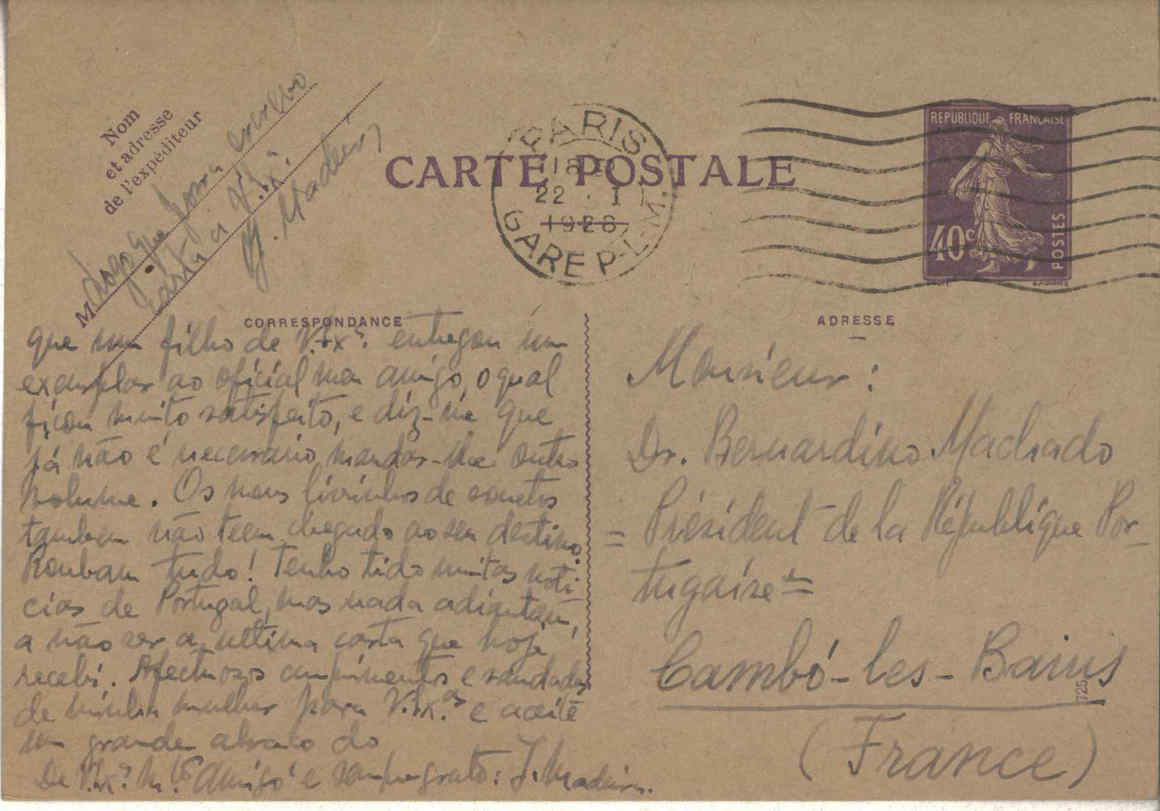 Nom
et adresse
de l'expéditeur
Logo que possa escrevo
carta a V. Ex.ª
J. Madeira
M
CARTE POSTALE
PARIS
18
22 · I
1928
GARE P.-L.-M.
RÉPUBLIQUE FRANÇAISE
40c
POSTES
CORRESPONDANCE
que um filho de V. Ex.ª entregou um
exemplar ao oficial meu amigo, o qual
ficou muito satisfeito, e diz-me que
já não é necessario mandar-lhe outro
volume. Os meus livrinhos de sonetos
tambem não teem chegado ao seu destino.
Roubam tudo! Tenho tido muitas noti
cias de Portugal, mas nada adiantam,
a não ser a ultima carta que hoje
recebi. Afectuosos cumprimentos e saudades
de minha mulher para V. Ex.as e aceite
um grande abraço do
De V. Ex.ª M.to Amigo e sempre grato: J. Madeira.
ADRESSE
Monsieur:
Dr. Bernardino Machado
= Président de la République Por-
tugaise =
Cambó-les-Bains
(France)
725